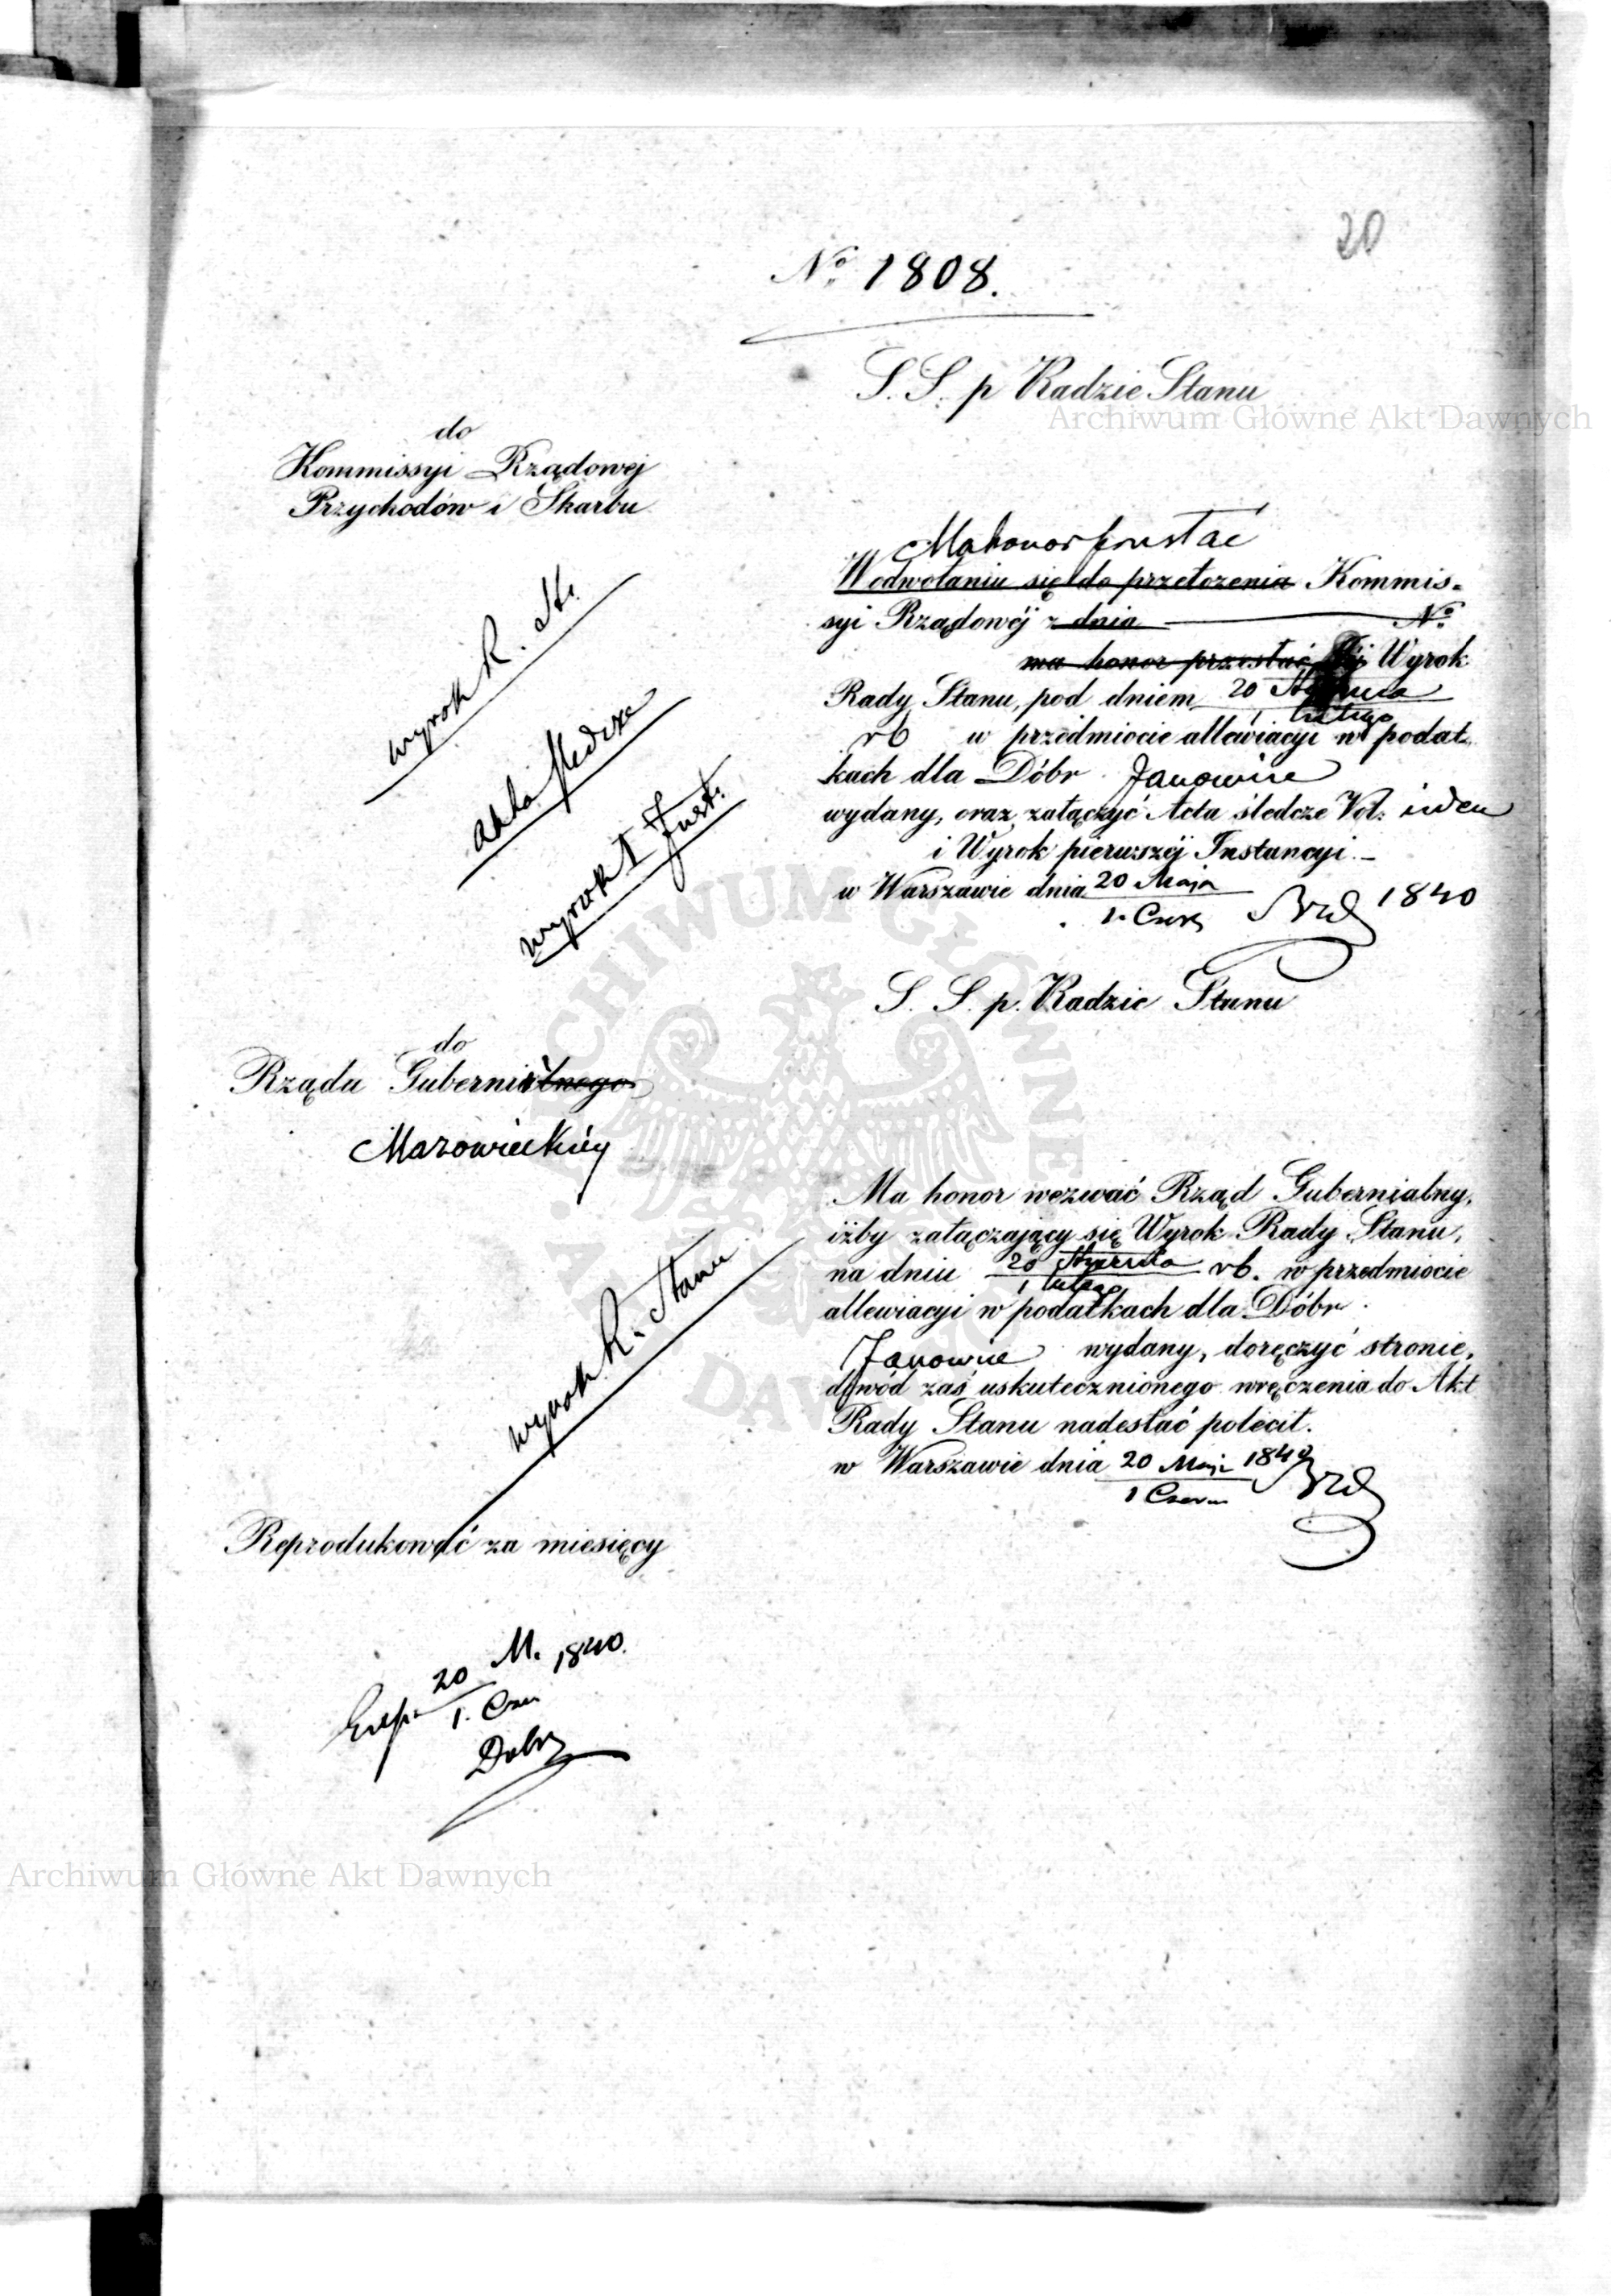 20
No 1808.
S. S. p Radzie Stanu
Archiwum Główne Akt Dawnych
do
Kommissyi Rządowej
Przychodów i Skarbu
wyrok R. St.
akta śledcze
wyrok I Inst.
Ma honor przesłać
W odwołaniu się do przełożenia Kommis-
syi Rządowéj z dnia No
ma honor przesłać Jéj Wyrok
Rady Stanu, pod dniem 20 Stycznia
1 Lutego
rb w przedmiocie allewiacyi w podat
kach dla Dóbr Janowice
wydany, oraz załączyć Acta śledcze Vol: ieden
i Wyrok pierwszéj Instancyi.-
w Warszawie dnia 20 Maja 1840
1. Czerw
S. S. p. Radzie Stanu
do
Rządu Gubernialnego
Mazowieckiey
wyrok R. Stanu
Ma honor wezwać Rząd Gubernialny,
iżby załączający się Wyrok Rady Stanu,
na dniu 20 Stycznia rb. w przedmiocie
1 Lutego
allewiacyi w podatkach dla Dóbr
Janowice wydany, doręczyć stronie,
dowód zaś uskutecznionego wręczenia do Akt
Rady Stanu nadesłać polecił.
w Warszawie dnia 20 Maja 1840
1 Czerw
Reprodukować za miesięcy
20 M. 1840.
Exp. 1. Czer
Archiwum Główne Akt Dawnych
ARCHIWUM GŁÓWNE AKT DAWNYCH